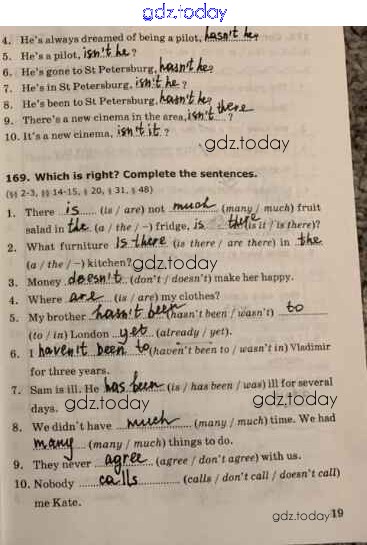 gdz.today
4. He's always dreamed of being a pilot, hasn't he?
5. He's a pilot, isn't he?
6. He's gone to St Petersburg, hasn't he?
7. He's in St Petersburg, isn't he?
8. He's been to St Petersburg, hasn't he?
9. There's a new cinema in the area, isn't there?
10. It's a new cinema, isn't it?
gdz.today
169. Which is right? Complete the sentences.
(§§ 2-3, §§ 14-15, § 20, § 31, § 48)
1. There is (is / are) not much (many / much) fruit
salad in the (a / the / –) fridge, is there (is it / is there)?
2. What furniture Is there (is there / are there) in the
(a / the / –) kitchen?
gdz.today
3. Money doesn't (don't / doesn't) make her happy.
4. Where are (is / are) my clothes?
5. My brother hasn't been (hasn't been / wasn't) to
(to / in) London yet (already / yet).
6. I haven't been to (haven't been to / wasn't in) Vladimir
for three years.
7. Sam is ill. He has been (is / has been / was) ill for several
days.
gdz.today gdz.today
8. We didn't have much (many / much) time. We had
many (many / much) things to do.
9. They never agree (agree / don't agree) with us.
10. Nobody calls (calls / don't call / doesn't call)
me Kate.
gdz.today
19